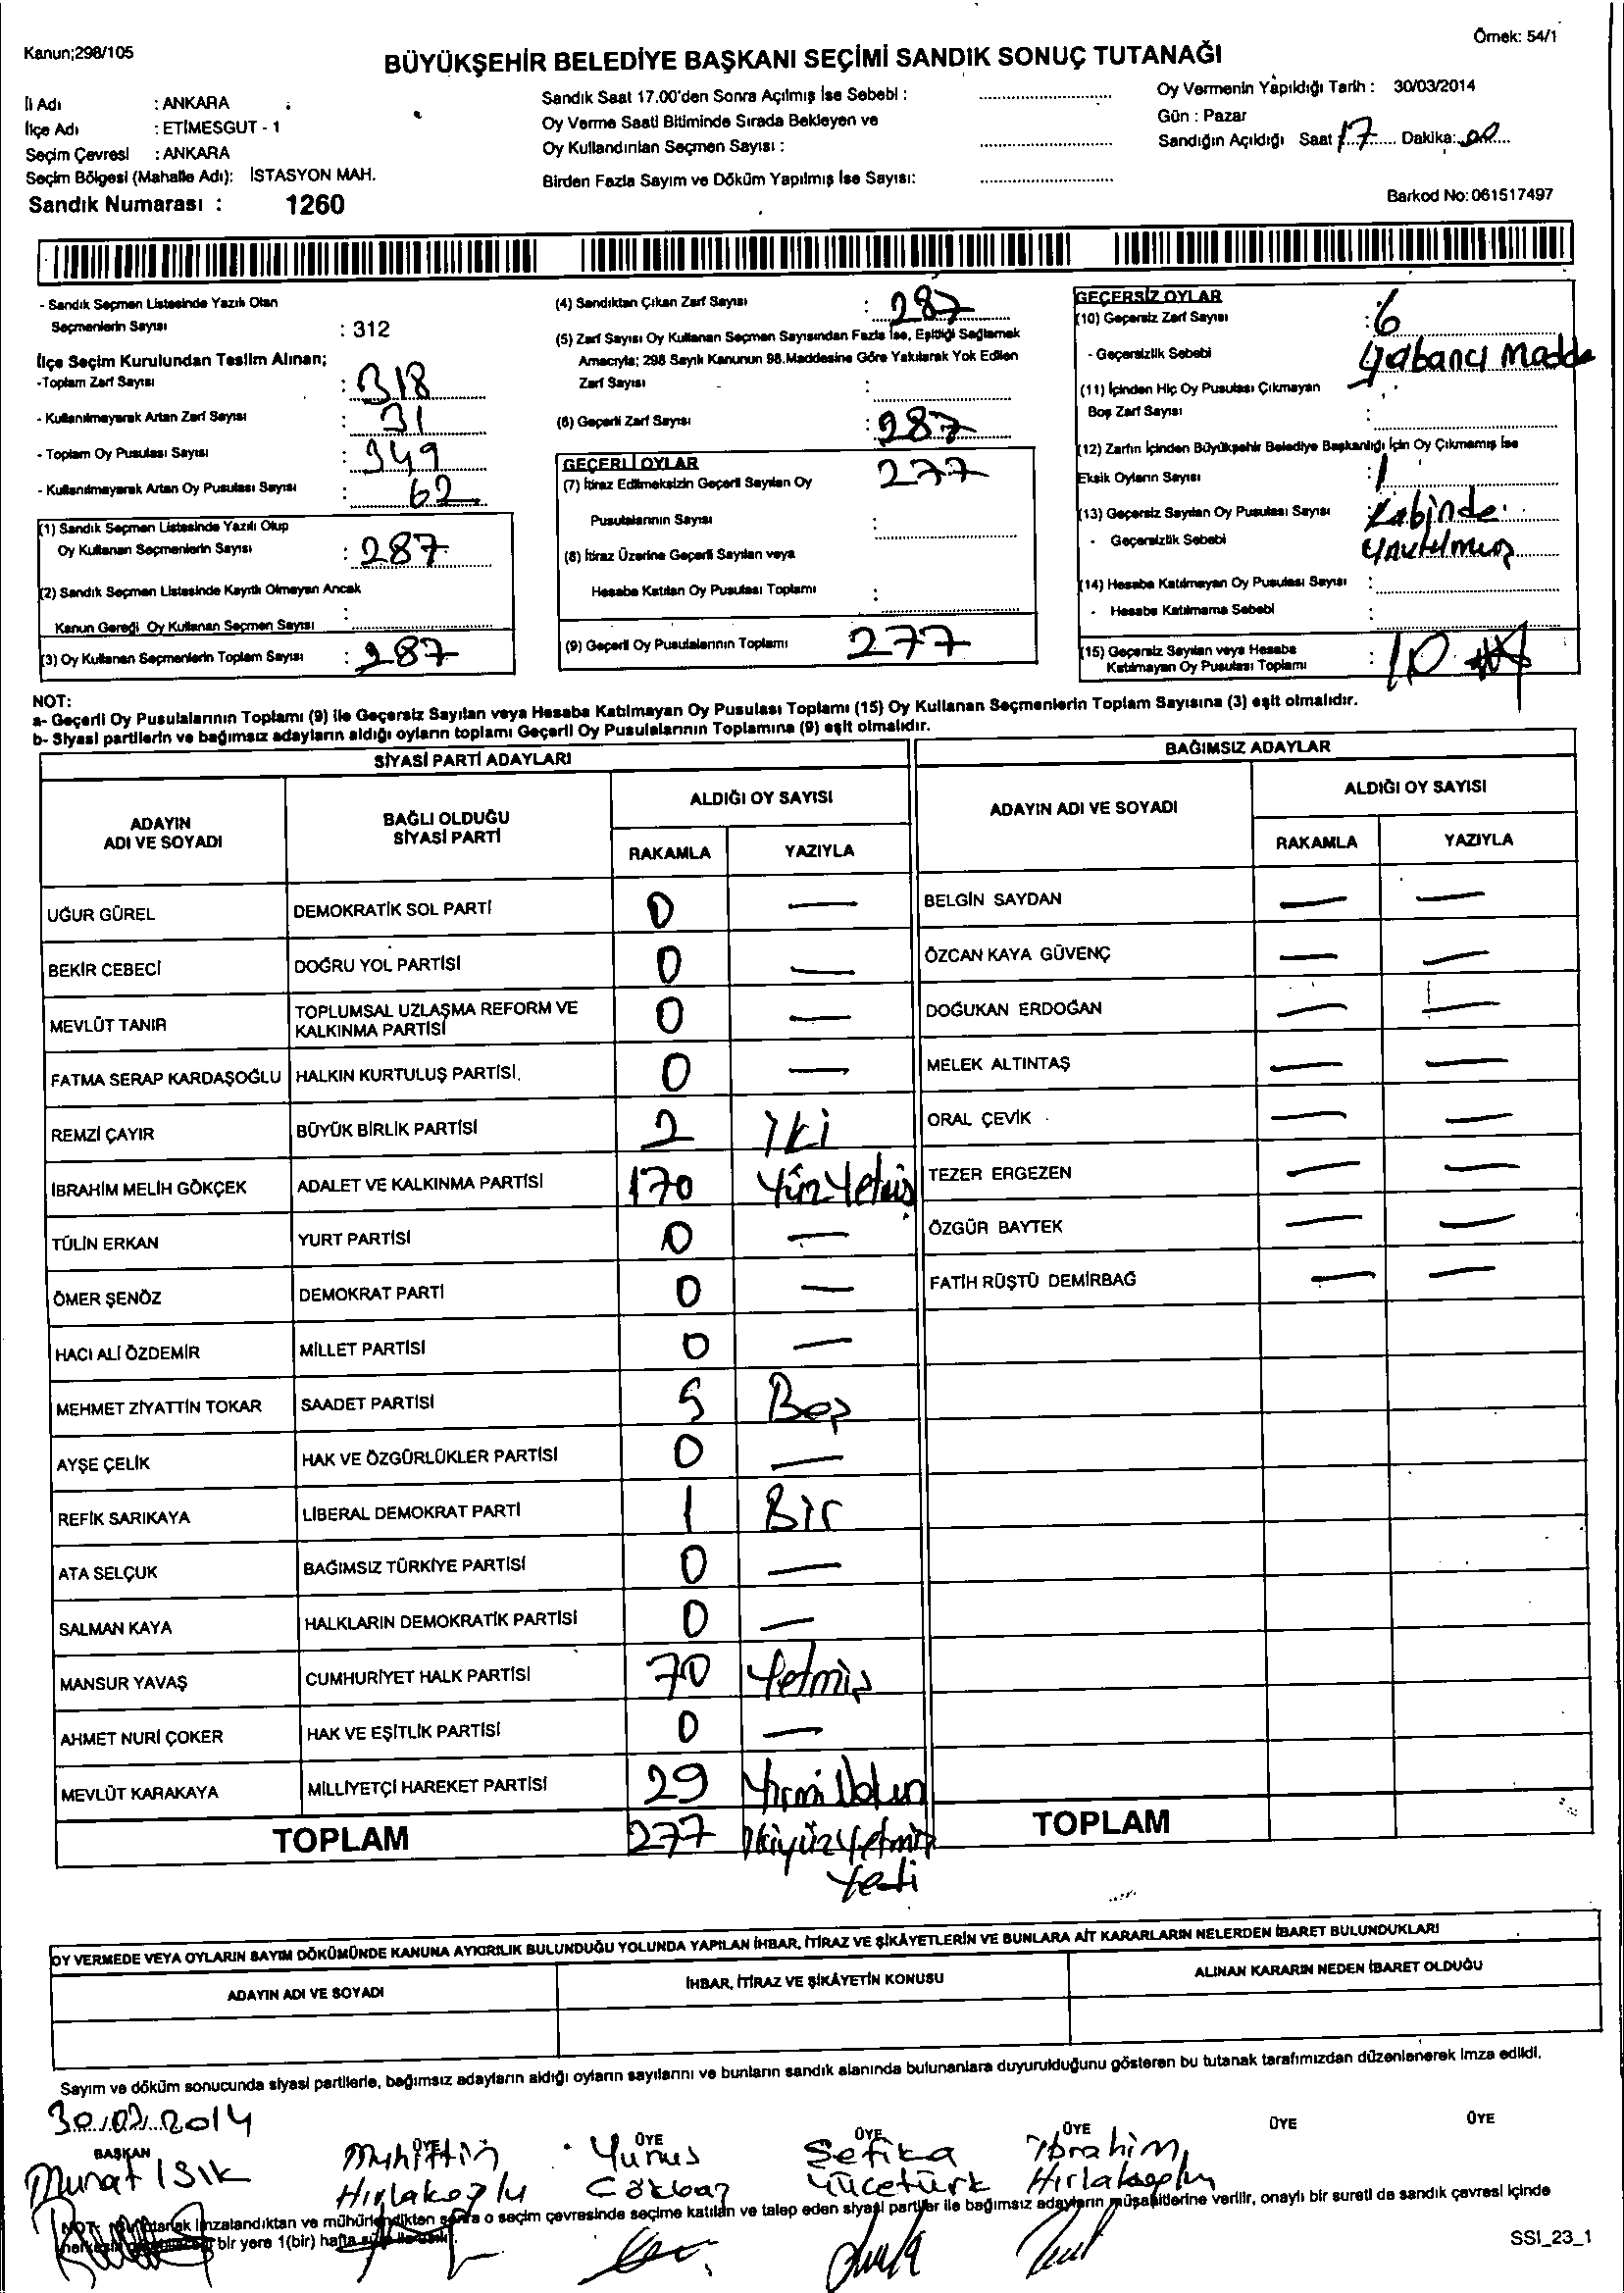 Kanun;298/105
Örnek: 54/1
BÜYÜKŞEHİR BELEDİYE BAŞKANI SEÇİMİ SANDIK SONUÇ TUTANAĞI
İli Adı : ANKARA
İlçe Adı : ETİMESGUT - 1
Seçim Çevresi : ANKARA
Seçim Bölgesi (Mahalle Adı): İSTASYON MAH.
Sandık Numarası : 1260
Sandık Saat 17.00'den Sonra Açılmış İse Sebebi :
Oy Verme Saati Bitiminde Sırada Bekleyen ve
Oy Kullandırılan Seçmen Sayısı :
Birden Fazla Sayım ve Döküm Yapılmış İse Sayısı:
Oy Vermenin Yapıldığı Tarih : 30/03/2014
Gün : Pazar
Sandığın Açıldığı Saat 17 Dakika: 00
Barkod No: 061517497
- Sandık Seçmen Listesinde Yazılı Olan
Seçmenlerin Sayısı : 312
İlçe Seçim Kurulundan Teslim Alınan;
-Toplam Zarf Sayısı : 318
- Kullanılmayarak Artan Zarf Sayısı : 31
- Toplam Oy Pusulası Sayısı : 349
- Kullanılmayarak Artan Oy Pusulası Sayısı : 62
(1) Sandık Seçmen Listesinde Yazılı Olup
Oy Kullanan Seçmenlerin Sayısı : 287
(2) Sandık Seçmen Listesinde Kayıtlı Olmayan Ancak
Kanun Gereği Oy Kullanan Seçmen Sayısı :
(3) Oy Kullanan Seçmenlerin Toplam Sayısı : 287
(4) Sandıktan Çıkan Zarf Sayısı : 287
(5) Zarf Sayısı Oy Kullanan Seçmen Sayısından Fazla İse, Eşitliği Sağlamak
Amacıyla; 298 Sayılı Kanunun 98.Maddesine Göre Yakılarak Yok Edilen
Zarf Sayısı :
(6) Geçerli Zarf Sayısı : 287
GEÇERLİ OYLAR
(7) İtiraz Edilmeksizin Geçerli Sayılan Oy 277
Pusulalarının Sayısı :
(8) İtiraz Üzerine Geçerli Sayılan veya
Hesaba Katılan Oy Pusulası Toplamı :
(9) Geçerli Oy Pusulalarının Toplamı 277
GEÇERSİZ OYLAR
(10) Geçersiz Zarf Sayısı : 6
- Geçersizlik Sebebi Yabancı Madde
(11) İçinden Hiç Oy Pusulası Çıkmayan
Boş Zarf Sayısı :
(12) Zarfın İçinden Büyükşehir Belediye Başkanlığı İçin Oy Çıkmamış İse
Eksik Oyların Sayısı : 1
(13) Geçersiz Sayılan Oy Pusulası Sayısı Kabinde
- Geçersizlik Sebebi unutulmuş
(14) Hesaba Katılmayan Oy Pusulası Sayısı :
- Hesaba Katılmama Sebebi :
(15) Geçersiz Sayılan veya Hesaba
Katılmayan Oy Pusulası Toplamı : 10
NOT:
a- Geçerli Oy Pusulalarının Toplamı (9) ile Geçersiz Sayılan veya Hesaba Katılmayan Oy Pusulası Toplamı (15) Oy Kullanan Seçmenlerin Toplam Sayısına (3) eşit olmalıdır.
b- Siyasi partilerin ve bağımsız adayların aldığı oyların toplamı Geçerli Oy Pusulalarının Toplamına (9) eşit olmalıdır.
SİYASİ PARTİ ADAYLARI
ADAYIN ADI VE SOYADI
BAĞLI OLDUĞU SİYASİ PARTİ
ALDIĞI OY SAYISI
RAKAMLA YAZIYLA
UĞUR GÜREL DEMOKRATİK SOL PARTİ 0 —
BEKİR CEBECİ DOĞRU YOL PARTİSİ 0 —
MEVLÜT TANIR TOPLUMSAL UZLAŞMA REFORM VE KALKINMA PARTİSİ 0 —
FATMA SERAP KARDAŞOĞLU HALKIN KURTULUŞ PARTİSİ 0 —
REMZİ ÇAYIR BÜYÜK BİRLİK PARTİSİ 2 İki
İBRAHİM MELİH GÖKÇEK ADALET VE KALKINMA PARTİSİ 170 YüzYetmiş
TÜLİN ERKAN YURT PARTİSİ 0 —
ÖMER ŞENÖZ DEMOKRAT PARTİ 0 —
HACI ALİ ÖZDEMİR MİLLET PARTİSİ 0 —
MEHMET ZİYATTİN TOKAR SAADET PARTİSİ 5 Beş
AYŞE ÇELİK HAK VE ÖZGÜRLÜKLER PARTİSİ 0 —
REFİK SARIKAYA LİBERAL DEMOKRAT PARTİ 1 Bir
ATA SELÇUK BAĞIMSIZ TÜRKİYE PARTİSİ 0 —
SALMAN KAYA HALKLARIN DEMOKRATİK PARTİSİ 0 —
MANSUR YAVAŞ CUMHURİYET HALK PARTİSİ 70 Yetmiş
AHMET NURİ ÇOKER HAK VE EŞİTLİK PARTİSİ 0 —
MEVLÜT KARAKAYA MİLLİYETÇİ HAREKET PARTİSİ 29 Yirmi Dokuz
TOPLAM 277 İkiyüzYetmiş
Yedi
BAĞIMSIZ ADAYLAR
ADAYIN ADI VE SOYADI
ALDIĞI OY SAYISI
RAKAMLA YAZIYLA
BELGİN SAYDAN — —
ÖZCAN KAYA GÜVENÇ — —
DOĞUKAN ERDOĞAN — —
MELEK ALTINTAŞ — —
ORAL ÇEVİK — —
TEZER ERGEZEN — —
ÖZGÜR BAYTEK — —
FATİH RÜŞTÜ DEMİRBAĞ — —
TOPLAM
OY VERMEDE VEYA OYLARIN SAYIM DÖKÜMÜNDE KANUNA AYKIRILIK BULUNDUĞU YOLUNDA YAPILAN İHBAR, İTİRAZ VE ŞİKÂYETLERİN VE BUNLARA AİT KARARLARIN NELERDEN İBARET BULUNDUKLARI
ADAYIN ADI VE SOYADI
İHBAR, İTİRAZ VE ŞİKÂYETİN KONUSU
ALINAN KARARIN NEDEN İBARET OLDUĞU
Sayım ve döküm sonucunda siyasi partilerle, bağımsız adayların aldığı oyların sayılarını ve bunların sandık alanında bulunanlara duyurulduğunu gösteren bu tutanak tarafımızdan düzenlenerek imza edildi.
30.03.2014
BAŞKAN ÜYE ÜYE ÜYE ÜYE ÜYE ÜYE
Murat IŞIK
Muhittin Hırlakoğlu
Yunus
Şefika Yücetürk
İbrahim Hırlakoğlu
imzalandıktan ve mühürlendikten sonra o seçim çevresinde seçime katılan ve talep eden siyasi partiler ile bağımsız adayların müşahitlerine verilir, onaylı bir sureti de sandık çevresi içinde
bir yere 1(bir) hafta
SSI_23_1